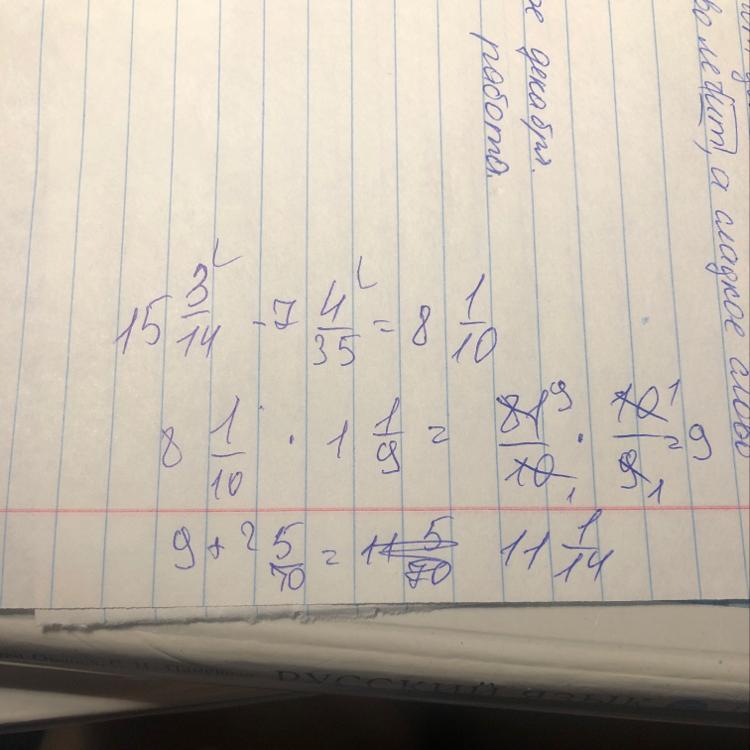 е декабря.
работа.
летит, а сладкое слово
15 3/14 - 7 4/35 = 8 1/10
8 1/10 · 1 1/9 = 81/10 · 10/9 = 9
9 + 2 5/70 = 11 5/70 11 1/14
РУССКИЙ ЯЗЫК